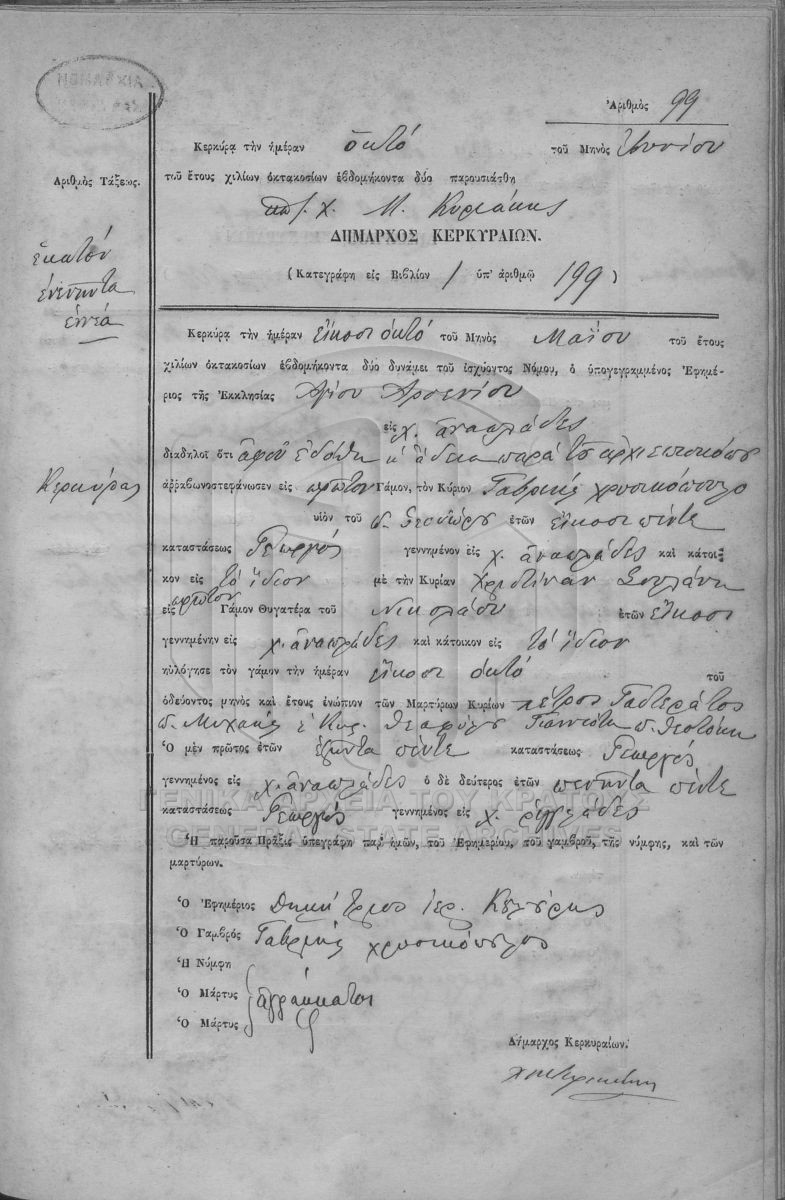 Ἀριθμὸς 99
Κερκύρᾳ τὴν ἡμέραν ὀκτό τοῦ Μηνὸς Ἰουνίου
Ἀριθμὸς Τάξεως.
τοῦ ἔτους χιλίων ὀκτακοσίων ἑβδομήκοντα δύο παρουσιάσθη
Χ. Μ. Κυριάκης
ΔΗΜΑΡΧΟΣ ΚΕΡΚΥΡΑΙΩΝ.
(Κατεγράφη εἰς Βιβλίον 1 ὑπ' ἀριθμῷ 199)
ἑκατόν
ἐνενῆντα
ἐννέα
Κερκύρᾳ τὴν ἡμέραν εἴκοσι ὀκτό τοῦ Μηνὸς Μαΐου τοῦ ἔτους
χιλίων ὀκτακοσίων ἑβδομήκοντα δύο δυνάμει τοῦ ἰσχύοντος Νόμου, ὁ ὑπογεγραμμένος Ἐφημέ-
ριος τῆς Ἐκκλησίας Ἁγίου Αρσενίου
εἰς χ. ἀναπλάδες
διαδηλοῖ ὅτι ἀφοῦ ἐδόθη ἡ ἄδεια παρὰ τοῦ ἀρχιεπισκόπου
Κερκύρας
ἀρραβωνοστεφάνωσεν εἰς πρῶτον Γάμον, τὸν Κύριον Γαβριὴλ χρυσικόπουλο
υἱὸν τοῦ ἐτῶν εἴκοσι πέντε
καταστάσεως Γεωργός γεννημένον εἰς χ. ἀναπλάδες καὶ κάτοι-
κον εἰς τὸ ἴδιον μὲ τὴν Κυρίαν Χριστίναν
εἰς πρῶτον Γάμον Θυγατέρα τοῦ Νικολάου ἐτῶν εἴκοσι
γεννημένην εἰς χ. ἀναπλάδες καὶ κάτοικον εἰς τὸ ἴδιον
ηὐλόγησε τὸν γάμον τὴν ἡμέραν εἴκοσι ὀκτό τοῦ
ὁδεύοντος μηνὸς καὶ ἔτους ἐνώπιον τῶν Μαρτύρων Κυρίων πέτρος Γαστεράτος
π. Μιχαήλ ἐ Κυρ. Θεοφύλου Γιαννιότη π. Θεοτόκη
Ὁ μὲν πρῶτος ἐτῶν ἑξῆντα πέντε καταστάσεως Γεωργός
γεννημένος εἰς χ. ἀναπλάδες ὁ δὲ δεύτερος ἐτῶν πενῆντα πέντε
ΓΕΝΙΚΑ ΑΡΧΕΙΑ ΤΟΥ ΚΡΑΤΟΥΣ
καταστάσεως Γεωργός γεννημένος εἰς χ. ἀργυράδες
GENERAL STATE ARCHIVES
Ἡ παροῦσα Πρᾶξις ὑπεγράφη παρ' ἡμῶν, τοῦ Ἐφημερίου, τοῦ γαμβροῦ, τῆς νύμφης, καὶ τῶν
μαρτύρων.
Ὁ Ἐφημέριος Δημήτριος ἱερ.
Ὁ Γαμβρός Γαβριήλ χρυσικόπουλος
Ἡ Νύμφη
Ὁ Μάρτυς ἀγράμματοι
Ὁ Μάρτυς
Δήμαρχος Κερκυραίων.